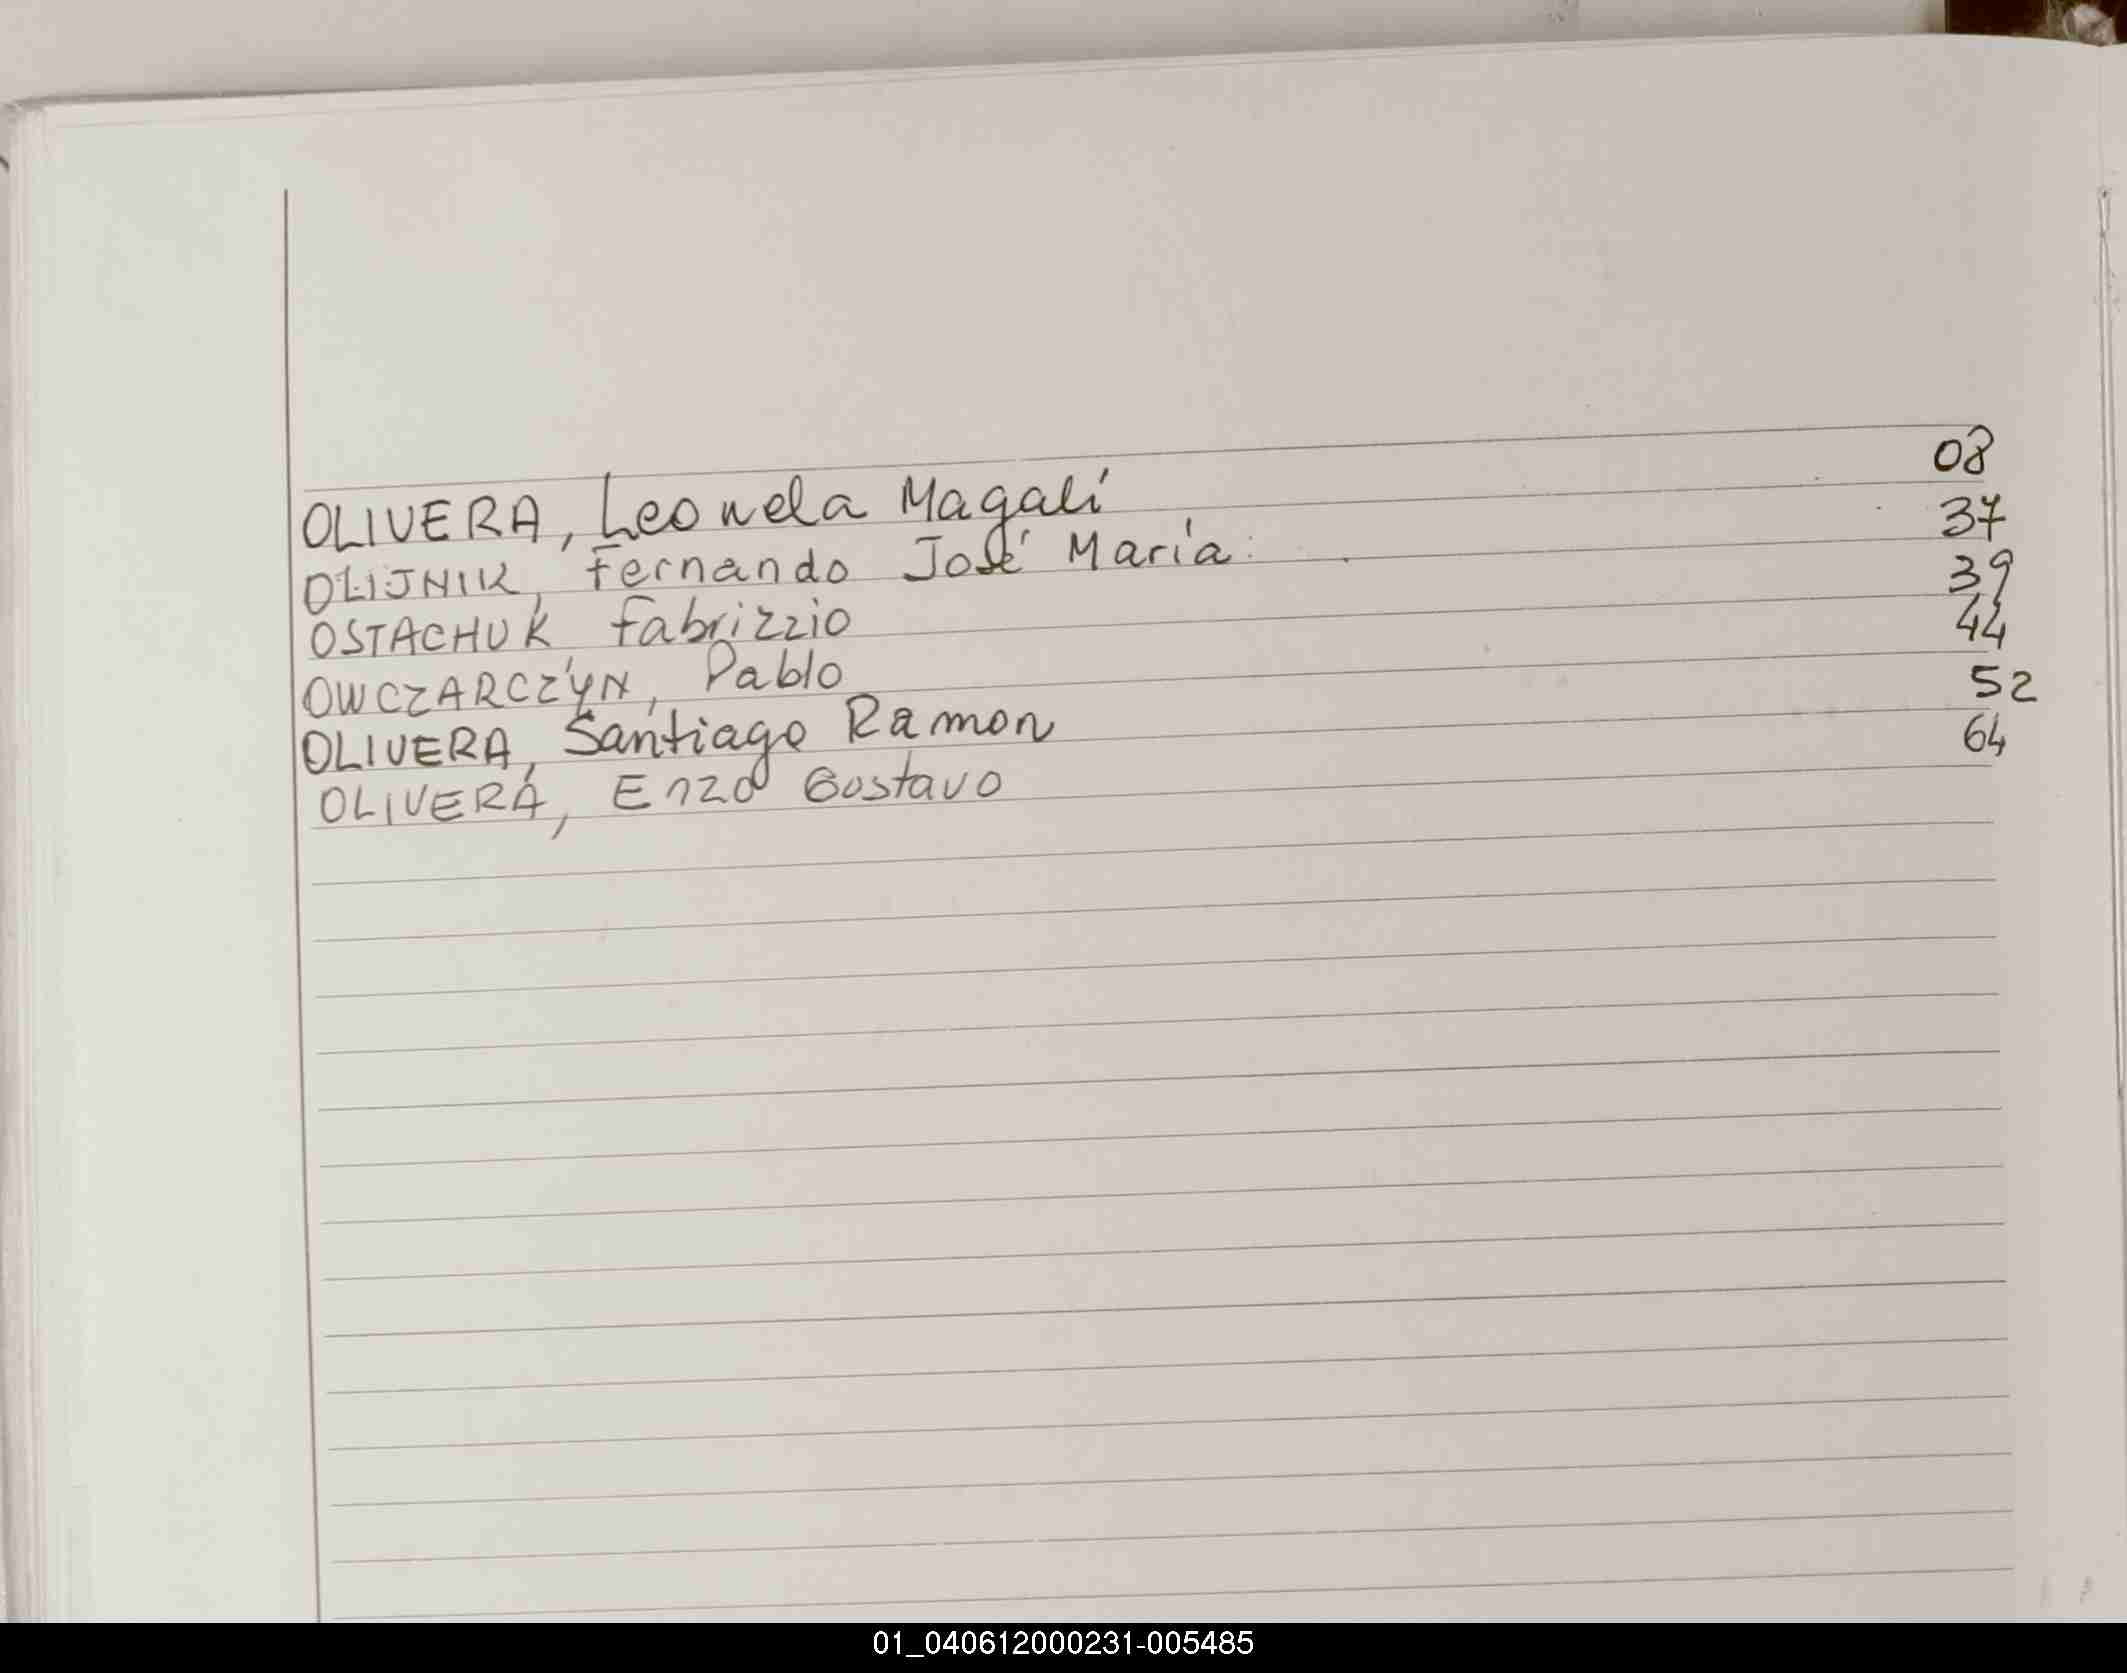 OLIVERA, Leonela Magalí 08
OLIJNIK, Fernando José María 37
OSTACHUK Fabrizzio 39
OWCZARCZYN, Pablo 44
OLIVERA, Santiago Ramon 52
OLIVERA, Enzo Gustavo 64
01_040612000231-005485